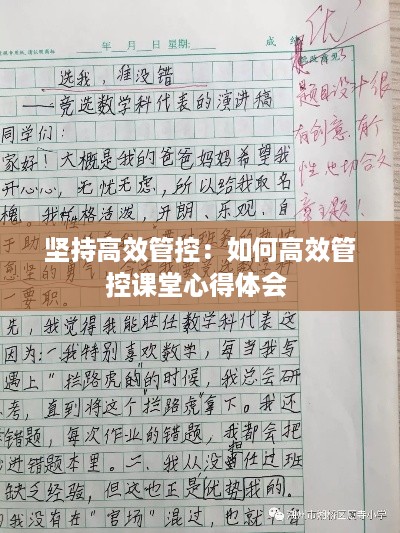 年 月 日 星期: 成绩
选我,准没错
——竞选数学科代表的演讲稿
同学们:
家好!大概是我的爸爸妈妈希望我
开心心,无忧无虑,所以给我取名
格活泼,开朗、乐观、自
坚持高效管控:如何高效管
控课堂心得体会
一要职。
先,我觉得我能胜任数学科代表这
因为:一、我特别喜欢数学,每当我与
遇上"拦路虎"的时候,我总会研
考,直到将这个拦路虎拿下。我还
错题,每次作业的错题,我都会把
进错题本里。二、我从没担任过班
缺乏经验,但这也正是优势我的。
我没有在"官场"混过,也就
题目设计很
有创意,有个
性,也切合文
章主题!
小学